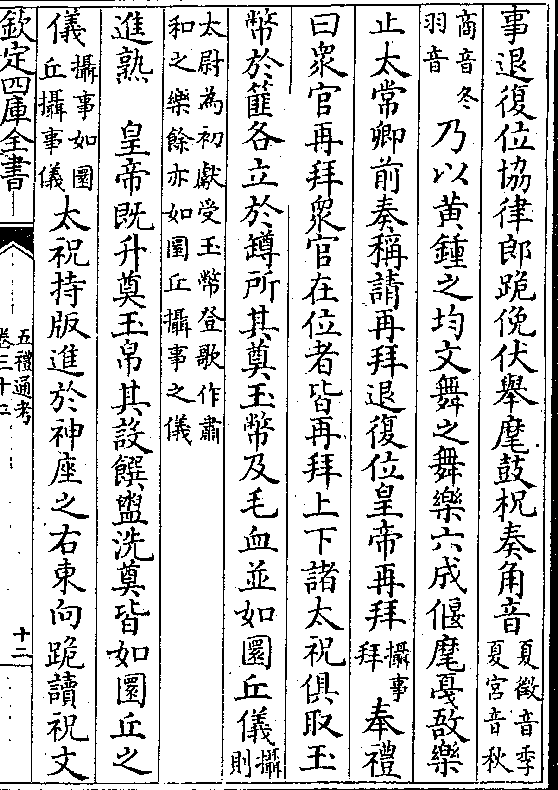 事退復位協律郎跪俛伏舉麾鼓柷奏角音夏徵音季夏宮音秋
商音冬羽音乃以黄鍾之均文舞之舞樂六成偃麾戞敔樂
止太常卿前奏稱請再拜退復位皇帝再拜攝事拜奉禮
曰衆官再拜衆官在位者皆再拜上下諸太祝俱取玉
幣於篚各立於罇所其奠玉幣及毛血並如圜丘儀攝則
太尉為初獻受玉幣登歌作肅和之樂餘亦如圜丘攝事之儀
進熟 皇帝既升奠玉帛其設饌盥洗奠皆如圜丘之
儀攝事如圜丘攝事儀太祝持版進於神座之右東向跪讀祝文
欽定四庫全書
五禮通考
卷三十二
十二